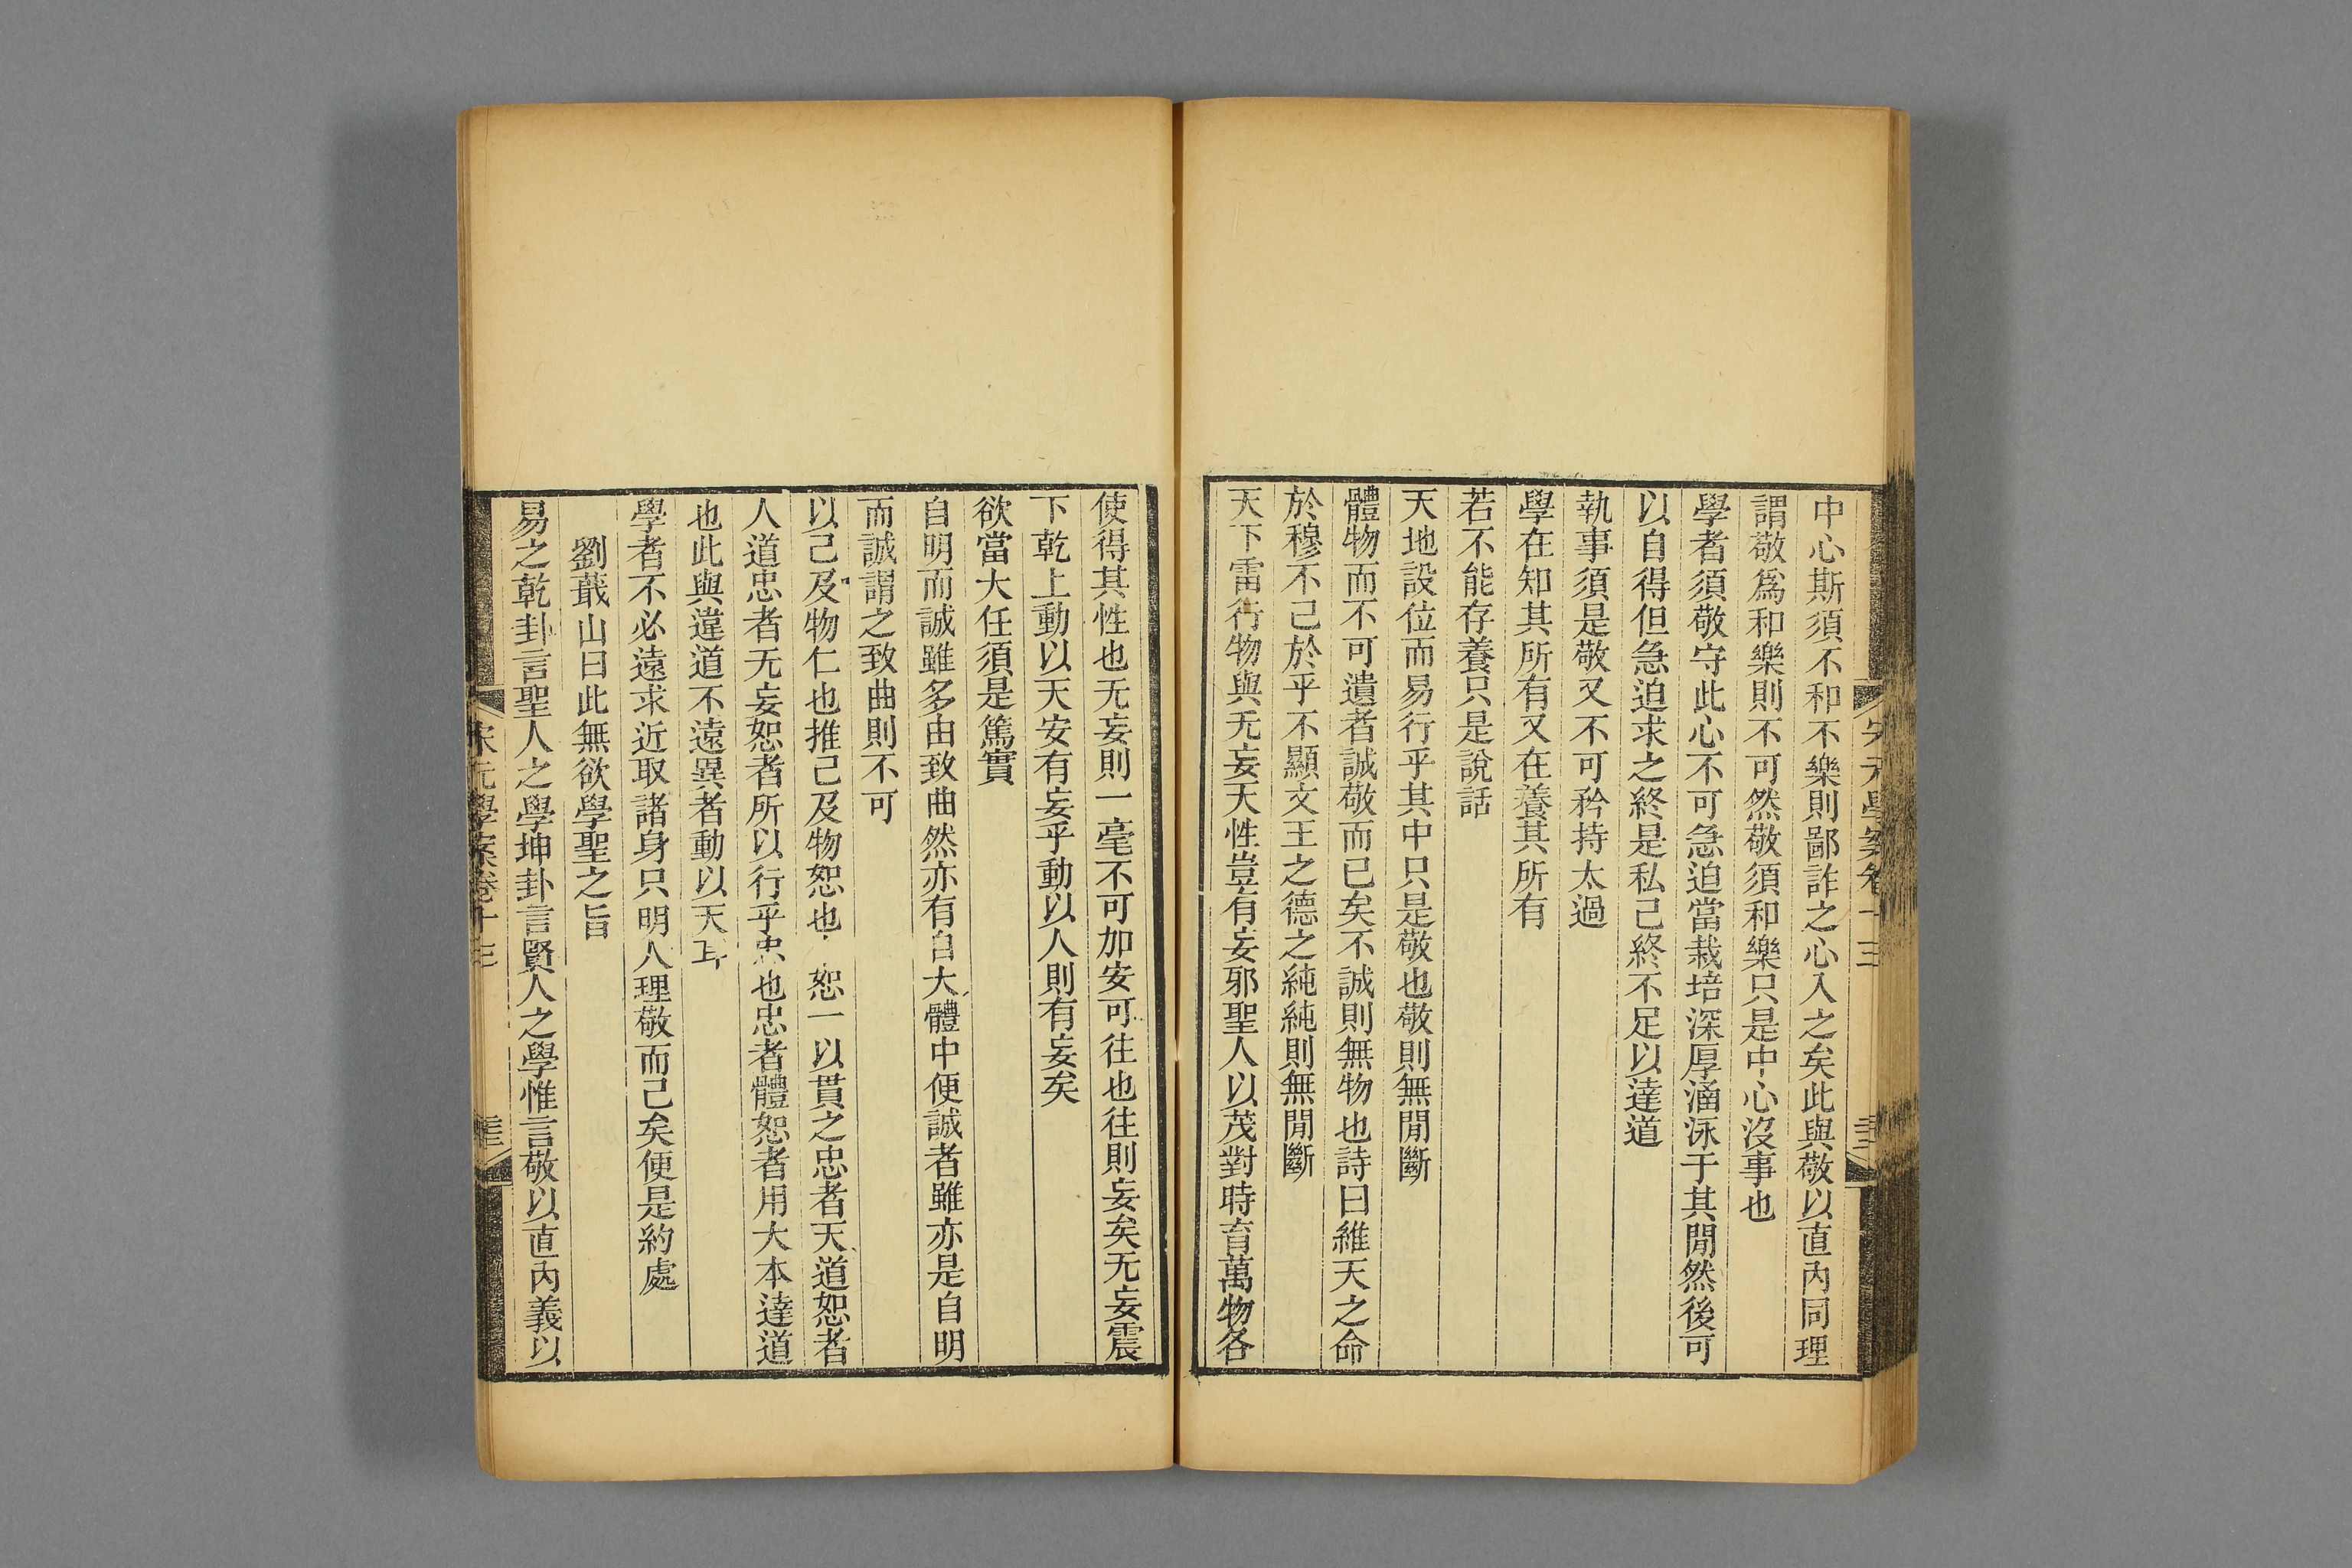 中心斯須不和不樂則鄙詐之心入之矣此與敬以直內同理
謂敬爲和樂則不可然敬須和樂只是中心沒事也
學者須敬守此心不可急迫當栽培深厚涵泳于其閒然後可
以自得但急迫求之終是私己終不足以達道
執事須是敬又不可矜持太過
學在知其所有又在養其所有
若不能存養只是說話
天地設位而易行乎其中只是敬也敬則無閒斷
體物而不可遺者誠敬而已矣不誠則無物也詩曰維天之命
於穆不已於乎不顯文王之德之純純則無閒斷
天下雷行物與无妄天性豈有妄邪聖人以茂對時育萬物各
使得其性也无妄則一毫不可加安可往也往則妄矣无妄震
下乾上動以天安有妄乎動以人則有妄矣
欲當大任須是篤實
自明而誠雖多由致曲然亦有自大體中便誠者雖亦是自明
而誠謂之致曲則不可
以己及物仁也推己及物恕也恕一以貫之忠者天道恕者
人道忠者无妄恕者所以行乎忠也忠者體恕者用大本達道
也此與違道不遠異者動以天耳
學者不必遠求近取諸身只明人理敬而已矣便是約處
劉蕺山曰此無欲學聖之旨
易之乾卦言聖人之學坤卦言賢人之學惟言敬以直內義以
宋元學案卷十三